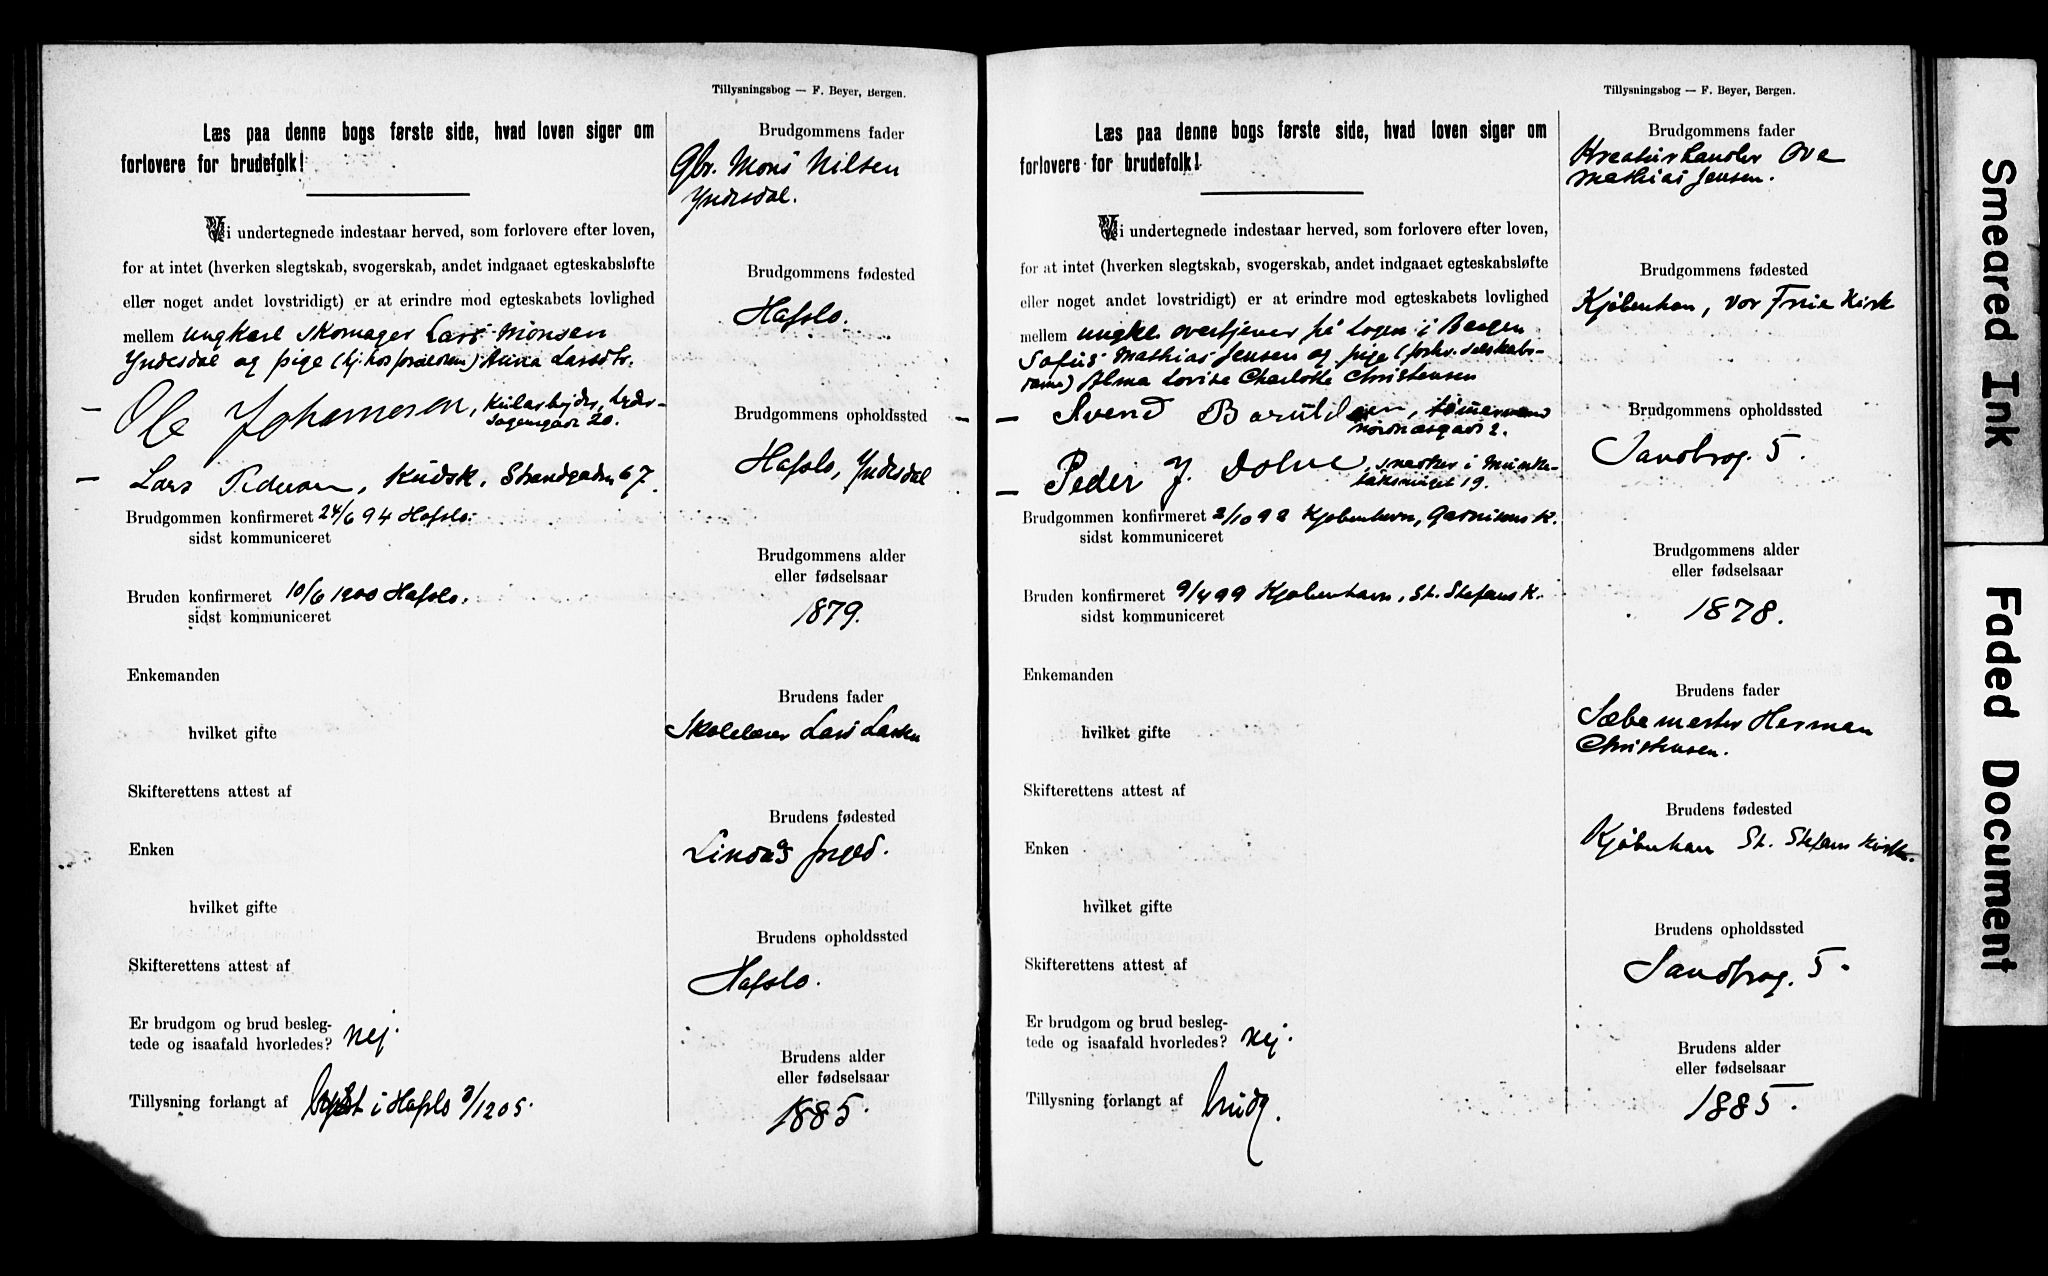 Tillysningsbog — F. Beyer, Bergen.
Læs paa denne bogs første side, hvad loven siger om
forlovere for brudefolk!
Vi undertegnede indestaar herved, som forlovere efter loven,
for at intet (hverken slegtskab, svogerskab, andet indgaaet egteskabsløfte
eller noget andet lovstridigt) er at erindre mod egteskabets lovlighed
mellem ungkarl skomager Lars Monsen
Yndesdal og pige (hj. hos forældren) Anna Larsdtr.
Ole Johannesen, Kularbejder,
20.
Lars Pedersen, Kudsk, Strandgaden 67.
Brudgommen konfirmeret 24/6 94 Hafslo.
sidst kommuniceret
Bruden konfirmeret 10/6 1900 Hafslo.
sidst kommuniceret
Enkemanden
hvilket gifte
Skifterettens attest af
Enken
hvilket gifte
Skifterettens attest af
Er brudgom og brud besleg-
tede og isaafald hvorledes? nej.
Tillysning forlangt af lyst i Hafslo 3/12 05.
Brudgommens fader
Gbr. Mons Nilsen
Yndesdal.
Brudgommens fødested
Hafslo.
Brudgommens opholdssted
Hafslo, Yndesdal
Brudgommens alder
eller fødselsaar
1879.
Brudens fader
Skolelærer Lars Larsen
Brudens fødested
Lindås prgd.
Brudens opholdssted
Hafslo.
Brudens alder
eller fødselsaar
1885.
Tillysningsbog — F. Beyer, Bergen.
Læs paa denne bogs første side, hvad loven siger om
forlovere for brudefolk!
Vi undertegnede indestaar herved, som forlovere efter loven,
for at intet (hverken slegtskab, svogerskab, andet indgaaet egteskabsløfte
eller noget andet lovstridigt) er at erindre mod egteskabets lovlighed
mellem ungkl. overtjener på Logen i Bergen
Sofus Mathias Jensen og pige (forhv. selskabs-
dame) Alma Lovise Charlotte Christensen
Svend, tømermand
Nordnæsgade 2.
Peder J. Dolve, snedker i Munke-
19.
Brudgommen konfirmeret 2/10 92 Kjøbenhavn, Garnisons K.
sidst kommuniceret
Bruden konfirmeret 9/4 99 Kjøbenhavn, St. Stefans K.
sidst kommuniceret
Enkemanden
hvilket gifte
Skifterettens attest af
Enken
hvilket gifte
Skifterettens attest af
Er brudgom og brud besleg-
tede og isaafald hvorledes? nej.
Tillysning forlangt af brudg.
Brudgommens fader
Kreaturhandler Ove
Mathias Jensen.
Brudgommens fødested
Kjøbenhavn, Vor Frue Kirk
Brudgommens opholdssted
Sandbrog. 5.
Brudgommens alder
eller fødselsaar
1878.
Brudens fader
Sæbemester Herman
Christensen.
Brudens fødested
Kjøbenhavn St. Stefans Kirke.
Brudens opholdssted
Sandbrog. 5.
Brudens alder
eller fødselsaar
1885.
Smeared Ink
Faded Document